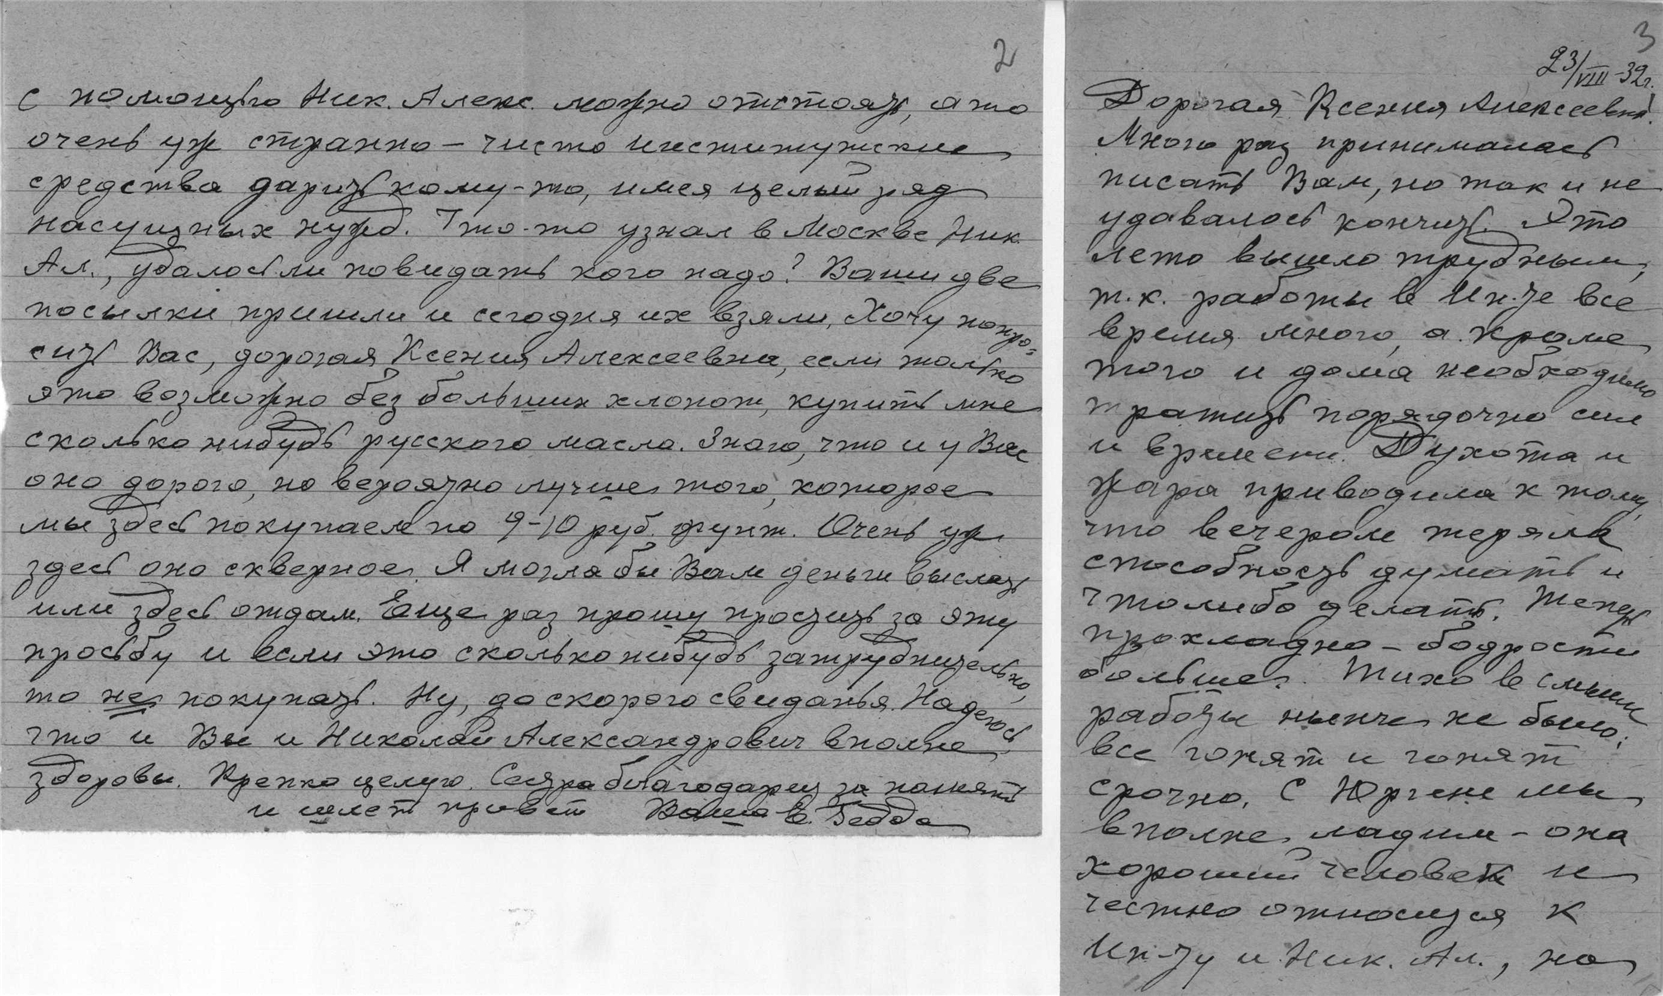 2
с помощью Ник. Алекс. можно отстоять, а то
очень уж странно – чисто институтские
средства дарить кому-то, имея целый ряд
насущных нужд. Что-то узнал в Москве Ник.
Ал., удалось ли повидать кого надо? Ваши две
посылки пришли и сегодня их взяли. Хочу попро-
сить Вас, дорогая Ксения Алексеевна, если только
это возможно без больших хлопот, купить мне
сколько нибудь русского масла. Знаю, что и у Вас
оно дорого, но вероятно лучше того, которое
мы здесь покупаем по 9-10 руб. фунт. Очень уж
здесь оно скверное. Я могла бы Вам деньги выслать
или здесь отдам. Еще раз прошу простить за эту
просьбу и если это сколько нибудь затруднительно,
то не покупать. Ну, до скорого свиданья. Надеюсь,
что и Вы и Николай Александрович вполне
здоровы. Крепко целую. Сестра благодарит за память
и шлет привет Ваша Е. Гедда
3
23/VIII-32г.
Дорогая Ксения Алексеевна!
Много раз принималась
писать Вам, но так и не
удавалось кончить. Это
лето вышло трудным,
т.к. работы в Ин-те все
время много, а кроме
того и дома необходимо
тратить порядочно сил
и времени. Духота и
жара приводила к тому,
что вечером теряла
способность думать и
чтолибо делать. Теперь
прохладно – бодрости
больше. Тихо в смысле
работы нынче не было:
все гонят и гонят
срочно. С Юргенс мы
вполне ладим – она
хороший человек и
честно относится к
Ин-ту и Ник. Ал., но